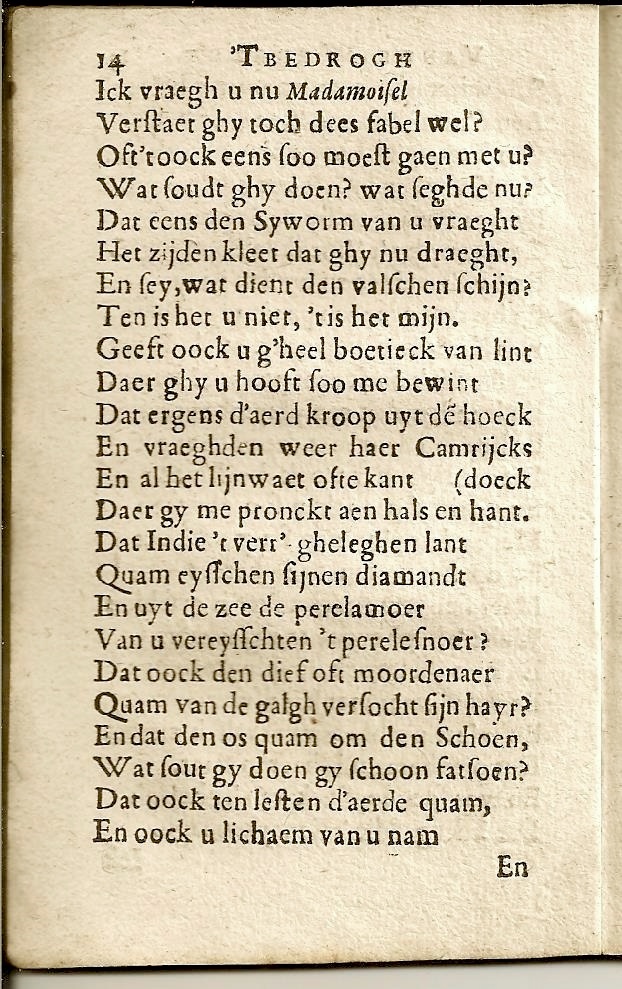 14 'TBEDROGH
Ick vraegh u nu Madamoiſel
Verſtaet ghy toch dees fabel wel?
Oft'toock eens ſoo moeſt gaen met u?
Wat ſoudt ghy doen? wat ſeghde nu?
Dat eens den Syworm van u vraeght
Het zijden kleet dat ghy nu draeght,
En ſey,wat dient den valſchen ſchijn?
Ten is het u niet, 'tis het mijn.
Geeft oock u g'heel boetieck van lint
Daer ghy u hooft ſoo me bewint
Dat ergens d'aerd kroop uyt dē hoeck
En vraeghden weer haer Camrijcks
En al het lijnwaet ofte kant (doeck
Daer gy me pronckt aen hals en hant.
Dat Indie 't verr' gheleghen lant
Quam eyſſchen ſijnen diamandt
En uyt de zee de perelamoer
Van u vereyſſchten 't pereleſnoer?
Dat oock den dief oft moordenaer
Quam van de galgh verſocht ſijn hayr?
En dat den os quam om den Schoen,
Wat ſout gy doen gy ſchoon fatſoen?
Dat oock ten leſten d'aerde quam,
En oock u lichaem van u nam
En